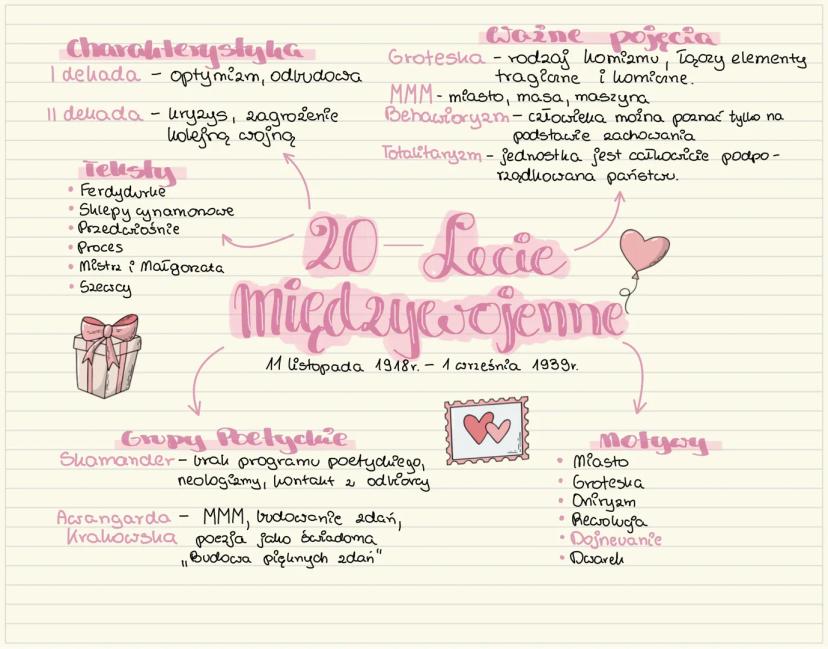 Charakterystyka
I dekada – optymizm, odbudowa
II dekada – kryzys, zagrożenie
kolejną wojną
Ważne pojęcia
Groteska – rodzaj komizmu, łączy elementy
tragiczne i komiczne.
MMM - miasto, masa, maszyna
Behawioryzm – człowieka można poznać tylko na
podstawie zachowania
Totalitaryzm – jednostka jest całkowicie podpo-
rządkowana państwu.
Teksty
• Ferdydurke
• Sklepy cynamonowe
• Przedwiośnie
• Proces
• Mistrz i Małgorzata
• Szewcy
20 – Lecie
międzywojenne
11 listopada 1918r. – 1 września 1939r.
Grupy Poetyckie
Skamander – brak programu poetyckiego,
neologizmy, kontakt z odbiorcą
Awangarda – MMM, budowanie zdań,
Krakowska poezja jako świadoma
„Budowa pięknych zdań"
Motywy
• Miasto
• Groteska
• Oniryzm
• Rewolucja
• Dojrzewanie
• Dworek